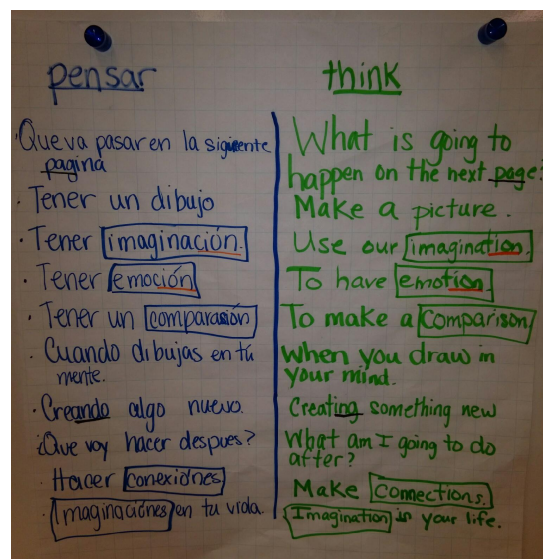 pensar
Que va pasar en la siguiente
pagina
· Tener un dibujo
· Tener imaginación.
· Tener emoción
· Tener un comparasión
· Cuando dibujas en tu
mente.
· Creando algo nuevo.
¿Que voy hacer despues?
· Hacer conexiónes
· Imaginaciónes en tu vida.
think
What is going to
happen on the next page?
Make a picture.
Use our imagination.
To have emotion.
To make a Comparison.
When you draw in
your mind.
Creating something new
What am I going to do
after?
Make Connections.
Imagination in your life.